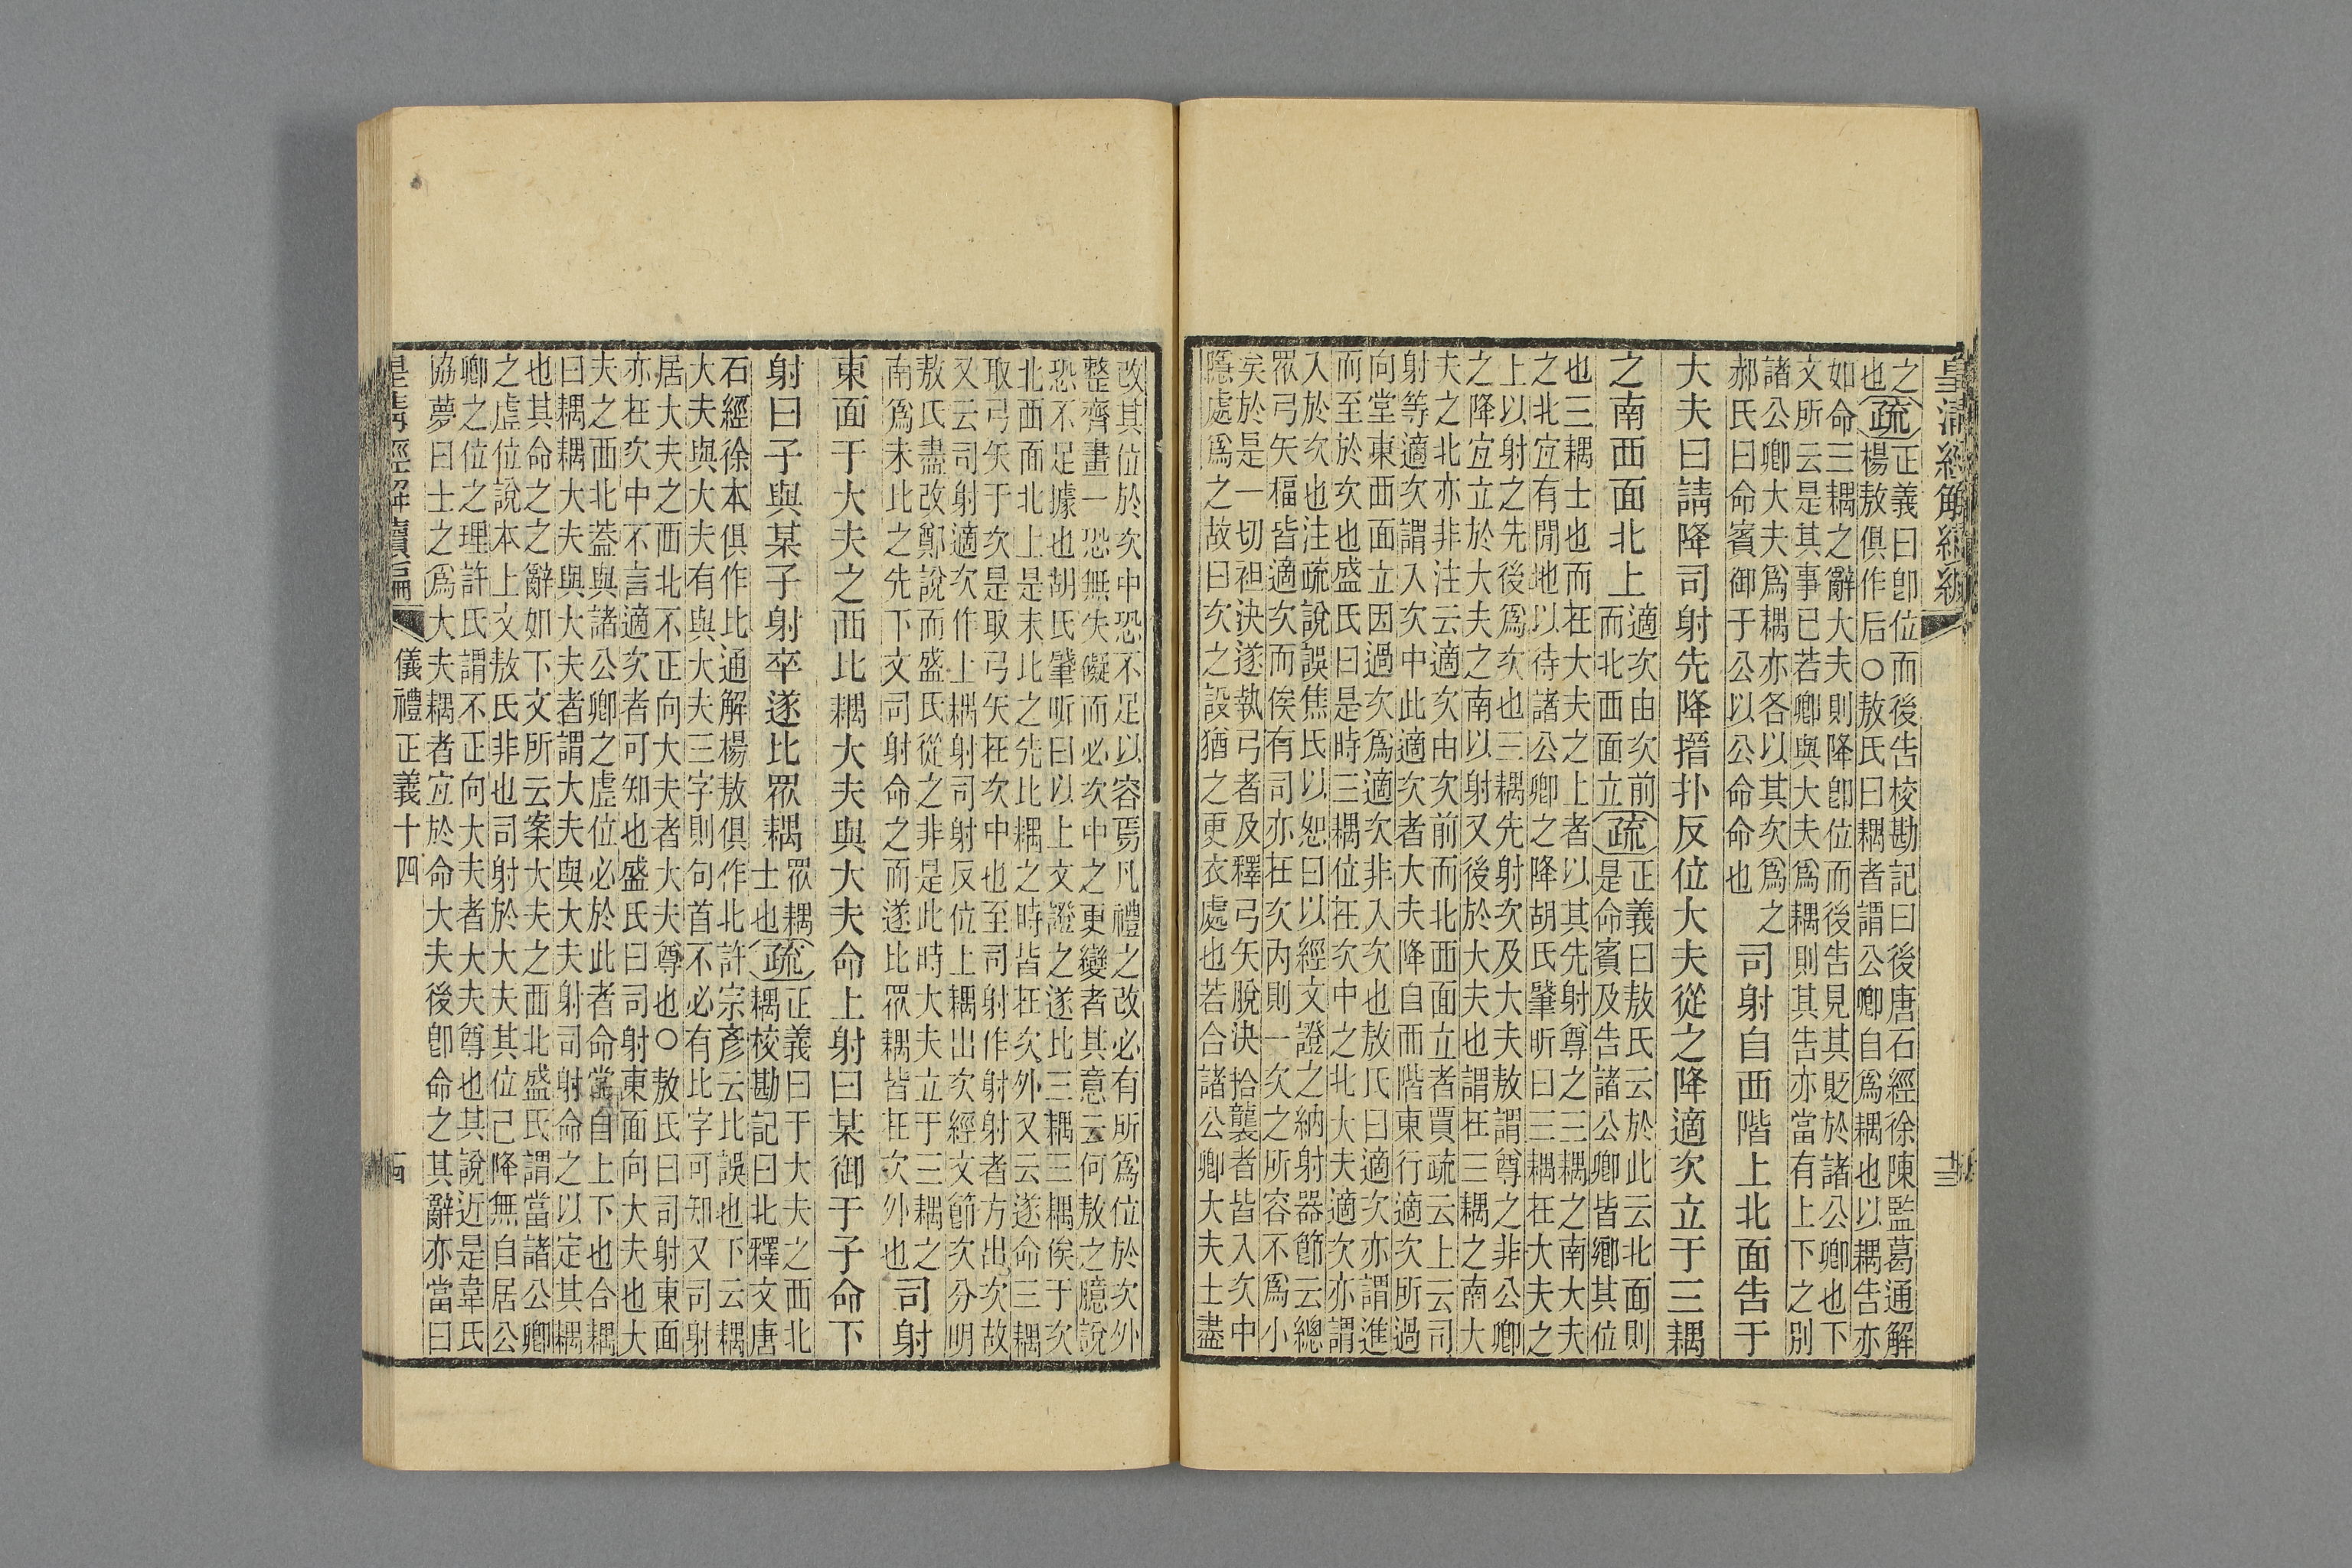 皇清經解續編
之
也疏正義曰卽位而後告校勘記曰後唐石經徐陳監葛通解
楊敖俱作后○敖氏曰耦者謂公卿自爲耦也以耦告亦
如命三耦之辭大夫則降卽位而後告見其貶於諸公卿也下
文所云是其事已若卿與大夫爲耦則其告亦當有上下之別
諸公卿大夫爲耦亦各以其次爲之
郝氏曰命賓御于公以公命命也
司射自西階上北面告于
大夫曰請降司射先降搢扑反位大夫從之降適次立于三耦
之南西面北上
適次由次前
而北西面立
疏正義曰敖氏云於此云北面則
是命賓及告諸公卿皆鄉其位
也三耦士也而在大夫之上者以其先射尊之三耦之南大夫
之北宜有閒地以待諸公卿之降胡氏肇昕曰三耦在大夫之
上以射之先後爲次也三耦先射次及大夫敖謂尊之非公卿
之降宜立於大夫之南以射又後於大夫也謂在三耦之南大
夫之北亦非注云適次由次前而北西面立者賈疏云上云司
射等適次謂入次中此適次者大夫降自西階東行適次所過
向堂東西面立因過次爲適次非入次也敖氏曰適次亦謂進
而至於次也盛氏曰是時三耦位在次中之北大夫適次亦謂
入於次也注疏說誤焦氏以恕曰以經文證之納射器節云總
眾弓矢楅皆適次而俟有司亦在次內則一次之所容不爲小
矣於是一切袒決遂執弓者及釋弓矢脫決拾襲者皆入次中
隱處爲之故曰次之設猶之更衣處也若合諸公卿大夫士盡
十三
改其位於次中恐不足以容焉凡禮之改必有所爲位於次外
整齊畫一恐無失礙而必次中之更變者其意云何敖之臆說
恐不足據也胡氏肇昕曰以上文證之遂比三耦三耦俟于次
北西面北上是未比之先比耦之時皆在次外又云遂命三耦
取弓矢于次是取弓矢在次中也至司射作射射者方出次故
又云司射適次作上耦射司射反位上耦出次經文節次分明
敖氏盡改鄭說而盛氏從之非是此時大夫立于三耦之
南爲未比之先下文司射命之而遂比眾耦皆在次外也
司射
東面于大夫之西比耦大夫與大夫命上射曰某御于子命下
射曰子與某子射卒遂比眾耦
眾耦
士也
疏正義曰于大夫之西北
耦校勘記曰北釋文唐
石經徐本俱作比通解楊敖俱作北許宗彥云比誤也下云耦
大夫與大夫有與大夫三字則句首不必有比字可知又司射
居大夫之西北不正向大夫者大夫尊也○敖氏曰司射東面
亦在次中不言適次者可知也盛氏曰司射東面向大夫也大
夫之西北蓋與諸公卿之虛位必於此者命當自上下也合耦
曰耦耦大夫與大夫者謂大夫與大夫射司射命之以定其耦
也其命之之辭如下文所云案大夫之西北盛氏謂當諸公卿
之虛位說本上文敖氏非也司射於大夫其位已降無自居公
卿之位之理許氏謂不正向大夫者大夫尊也其說近是韋氏
協夢曰士之爲大夫耦者宜於命大夫後卽命之其辭亦當曰
皇清經解續編
儀禮正義十四